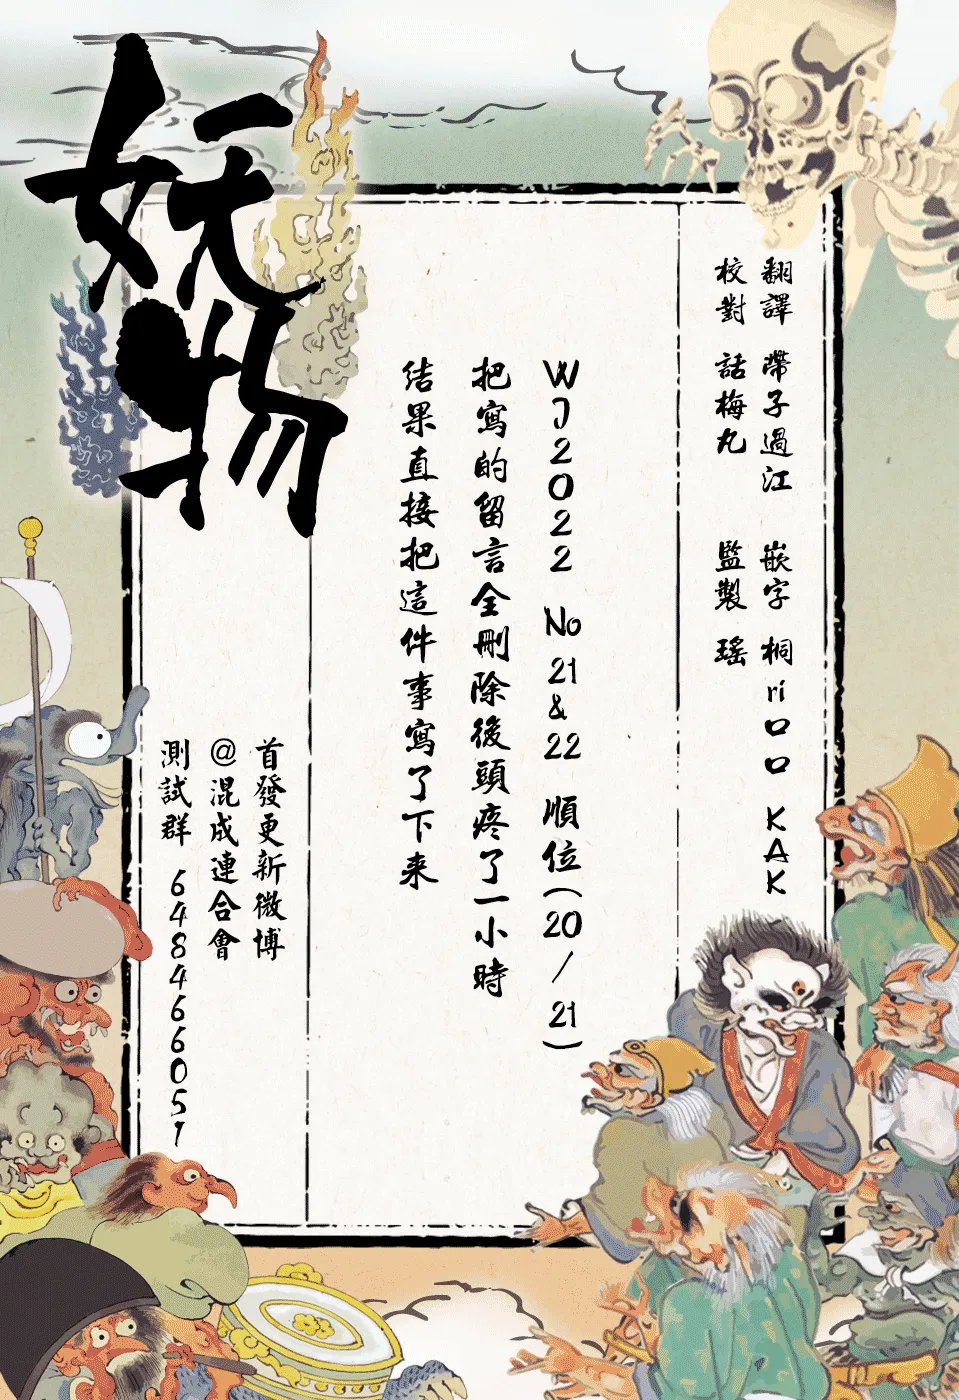 妖物
翻譯 帶子過江 嵌字 桐ri口口 KAK
校對 話梅丸 監製 瑤
WJ2022 No21&22 順位(20/21)
把寫的留言全刪除後頭疼了一小時
结果直接把這件事寫了下来
首發更新微博
@混成連合會
測試群 648466051